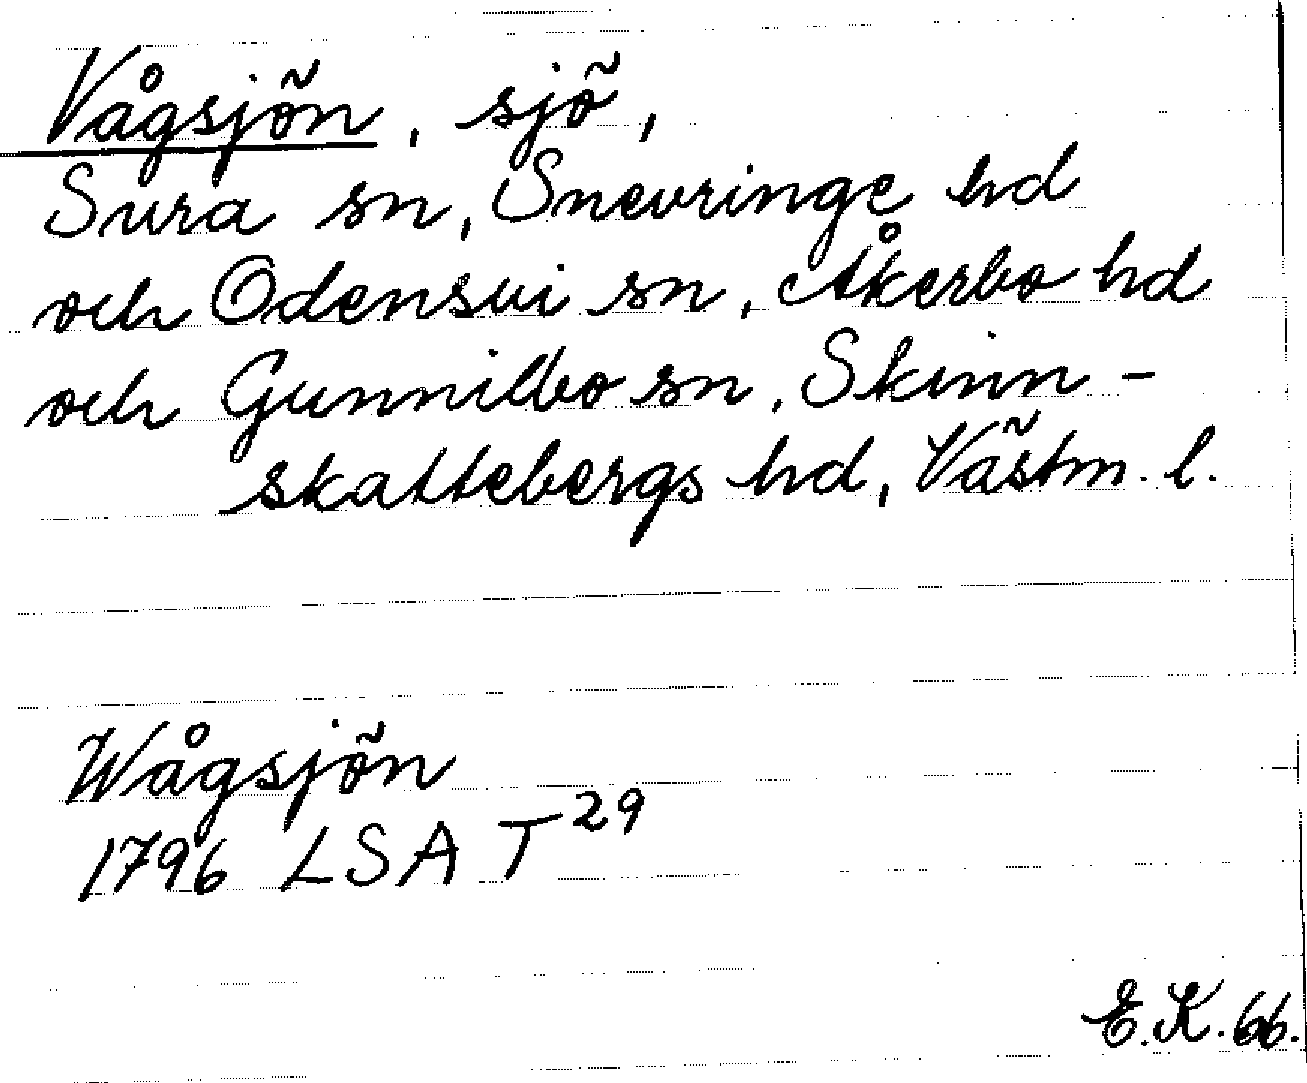 Vågsjön, sjö,
Sura sn, Snevringe hd
och Odensvi sn, Åkerbo hd
och Gunnilbo sn, Skinn-
skattebergs hd, Västm. l.
Wågsjön
1796 LSA T29
E.K. 66.